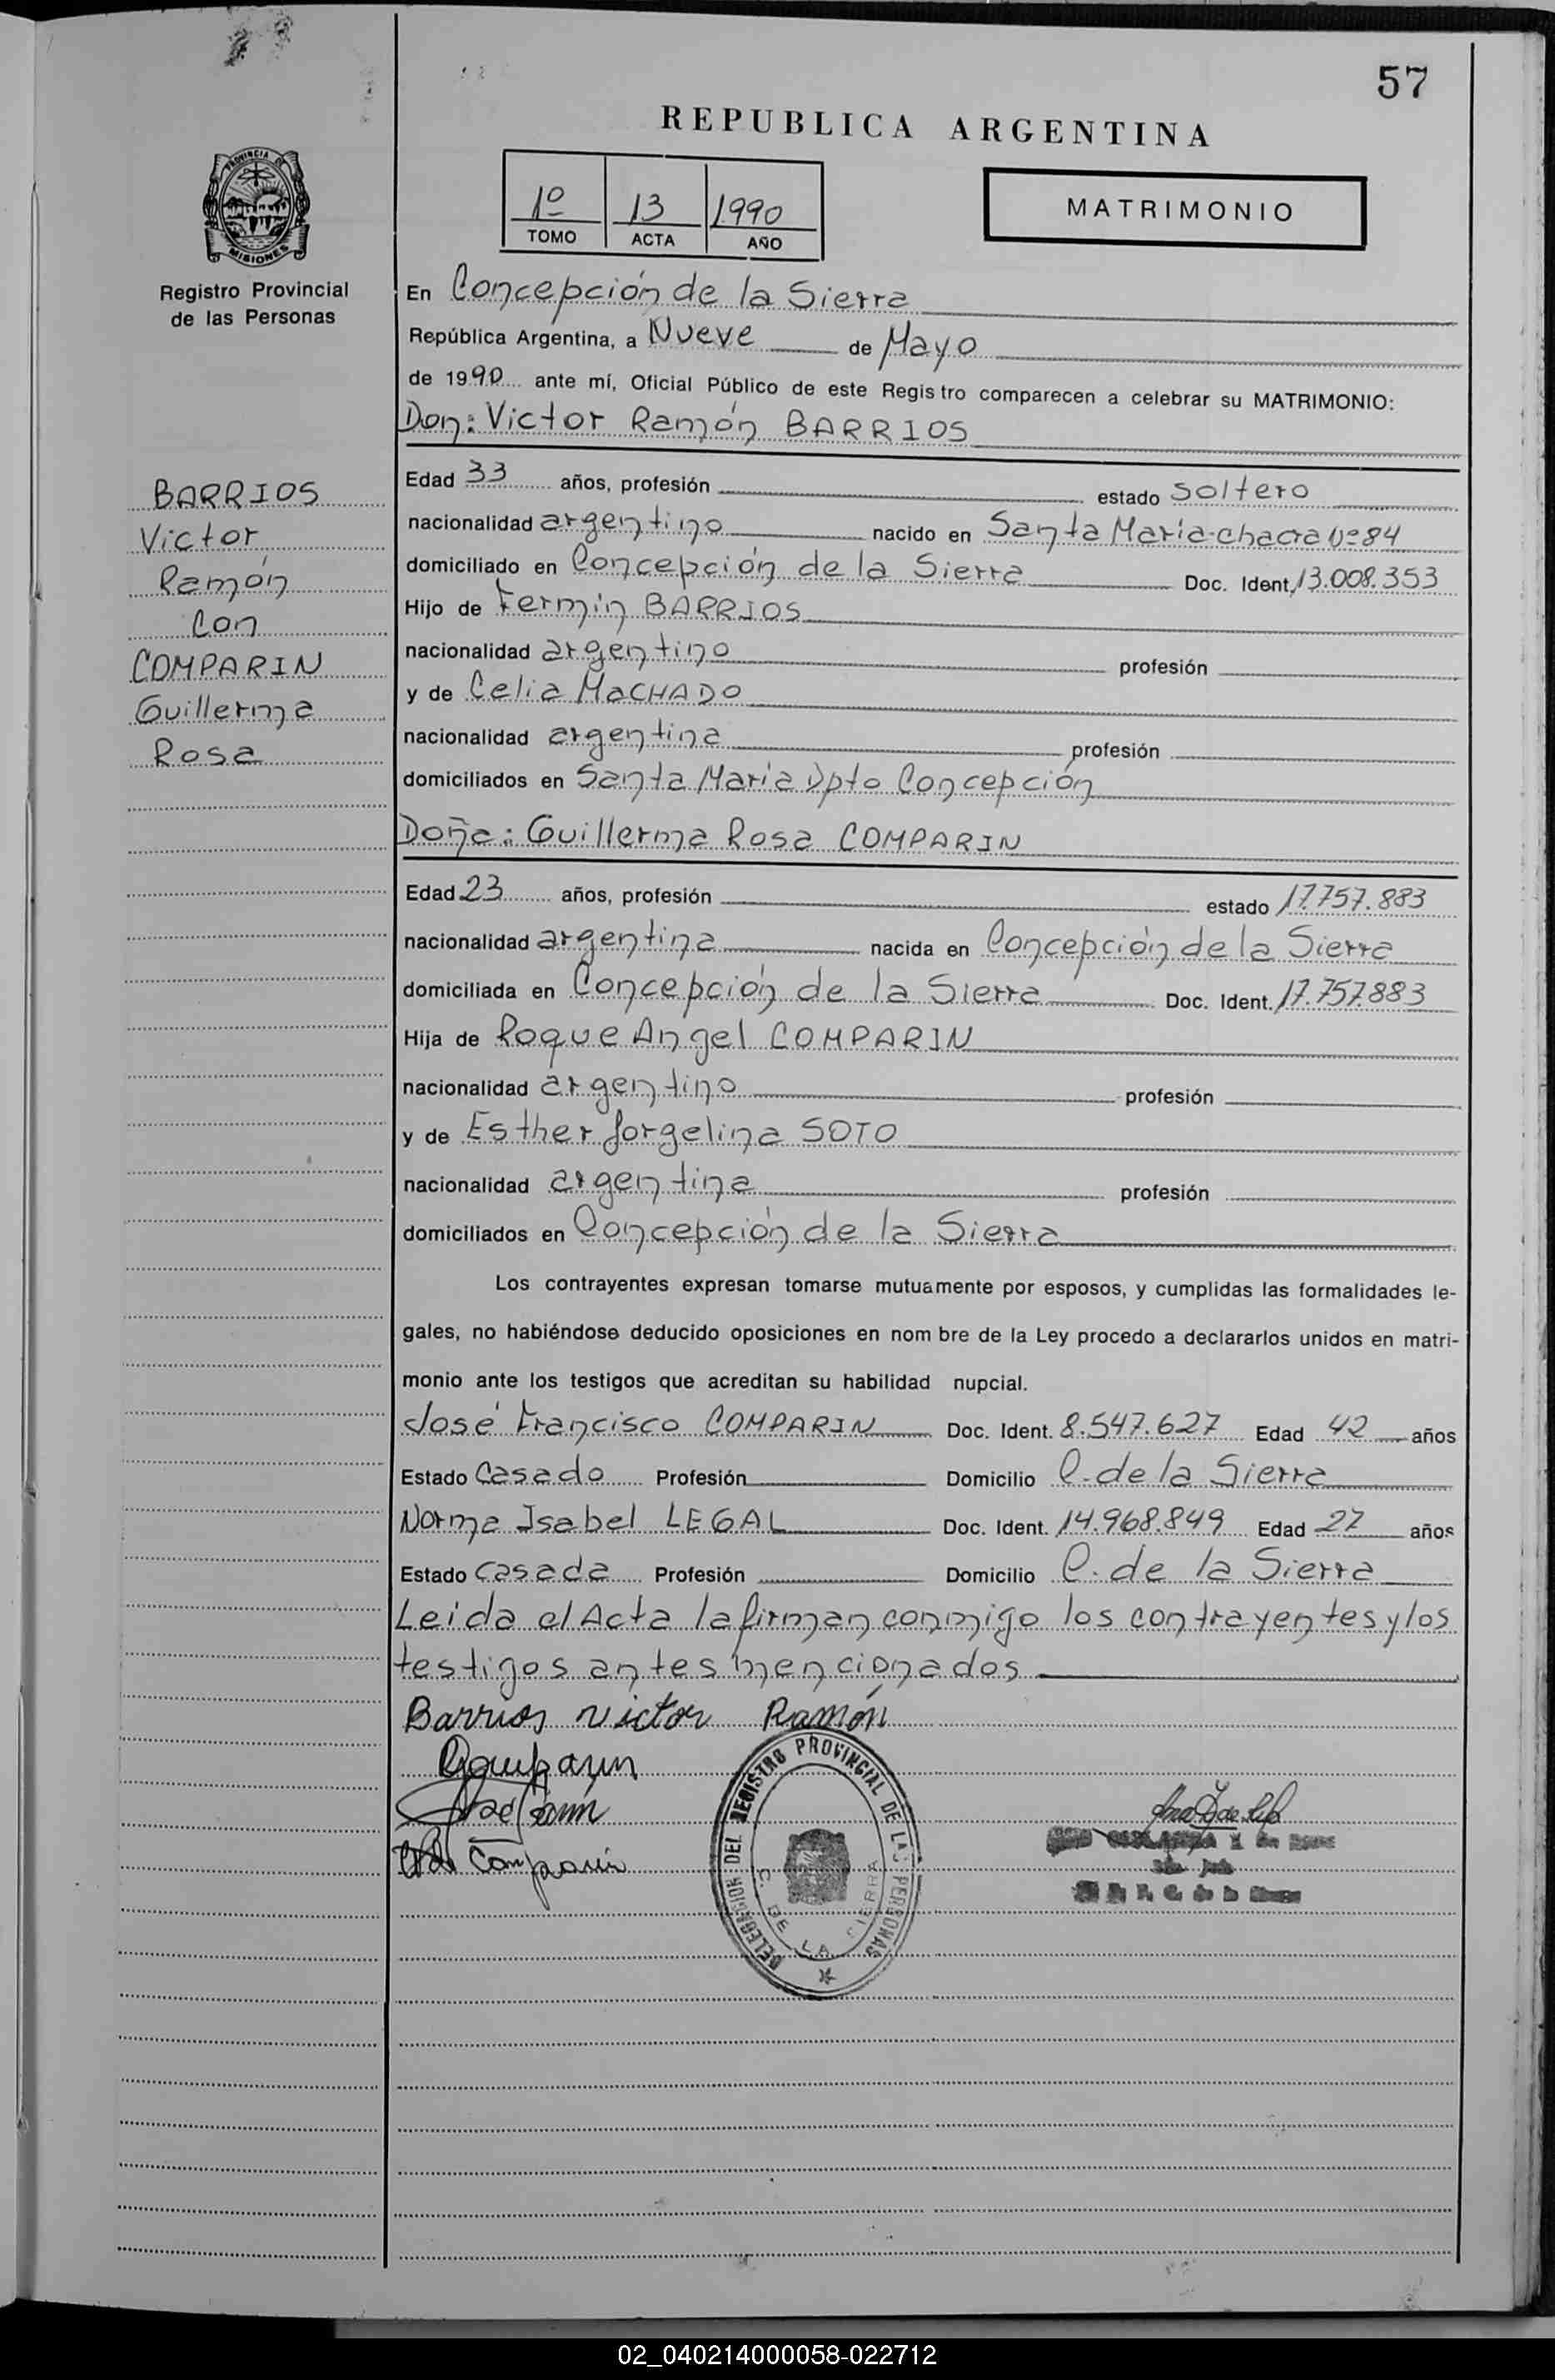 57
REPUBLICA ARGENTINA
1º 13 1990
TOMO ACTA AÑO
MATRIMONIO
PROVINCIA DE
MISIONES
Registro Provincial
de las Personas
En Concepción de la Sierra
República Argentina, a Nueve de Mayo
de 1990 ante mí, Oficial Público de este Registro comparecen a celebrar su MATRIMONIO:
Don: Victor Ramón BARRIOS
BARRIOS
Victor
Ramón
Con
COMPARIN
Guillerma
Rosa
Edad 33 años, profesión estado soltero
nacionalidad argentino nacido en Santa María-chacra Nº 84
domiciliado en Concepción de la Sierra Doc. Ident. 13.008.353
Hijo de Fermín BARRIOS
nacionalidad argentino profesión
y de Celia MACHADO
nacionalidad argentina profesión
domiciliados en Santa María Dpto Concepción
Doña: Guillerma Rosa COMPARIN
Edad 23 años, profesión estado 17.757.883
nacionalidad argentina nacida en Concepción de la Sierra
domiciliada en Concepción de la Sierra Doc. Ident. 17.757.883
Hija de Roque Angel COMPARIN
nacionalidad argentino profesión
y de Esther Jorgelina SOTO
nacionalidad argentina profesión
domiciliados en Concepción de la Sierra
Los contrayentes expresan tomarse mutuamente por esposos, y cumplidas las formalidades le-
gales, no habiéndose deducido oposiciones en nom bre de la Ley procedo a declararlos unidos en matri-
monio ante los testigos que acreditan su habilidad nupcial.
José Francisco COMPARIN Doc. Ident. 8.547.627 Edad 42 años
Estado Casado Profesión Domicilio C. de la Sierra
Norma Isabel LEGAL Doc. Ident. 14.968.849 Edad 27 años
Estado casada Profesión Domicilio C. de la Sierra
Leida el Acta la firman conmigo los contrayentes y los
testigos antes mencionados
Barrios victor Ramón
Comparin
Comparin
DELEGACION DEL REGISTRO PROVINCIAL DE LAS PERSONAS
C. DE LA SIERRA
02_040214000058-022712